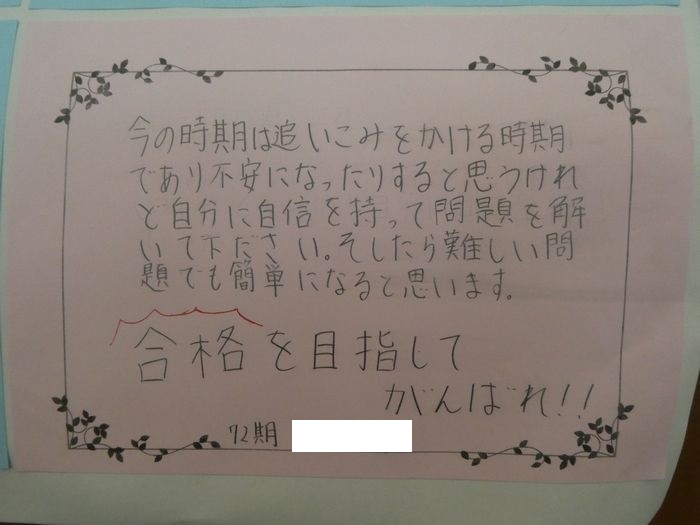 今の時期は追いこみをかける時期
であり不安になったりすると思うけれ
ど自分に自信を持って問題を解
いて下ださい。そしたら難しい問
題でも簡単になると思います。
合格を目指して
がんばれ!!
72期